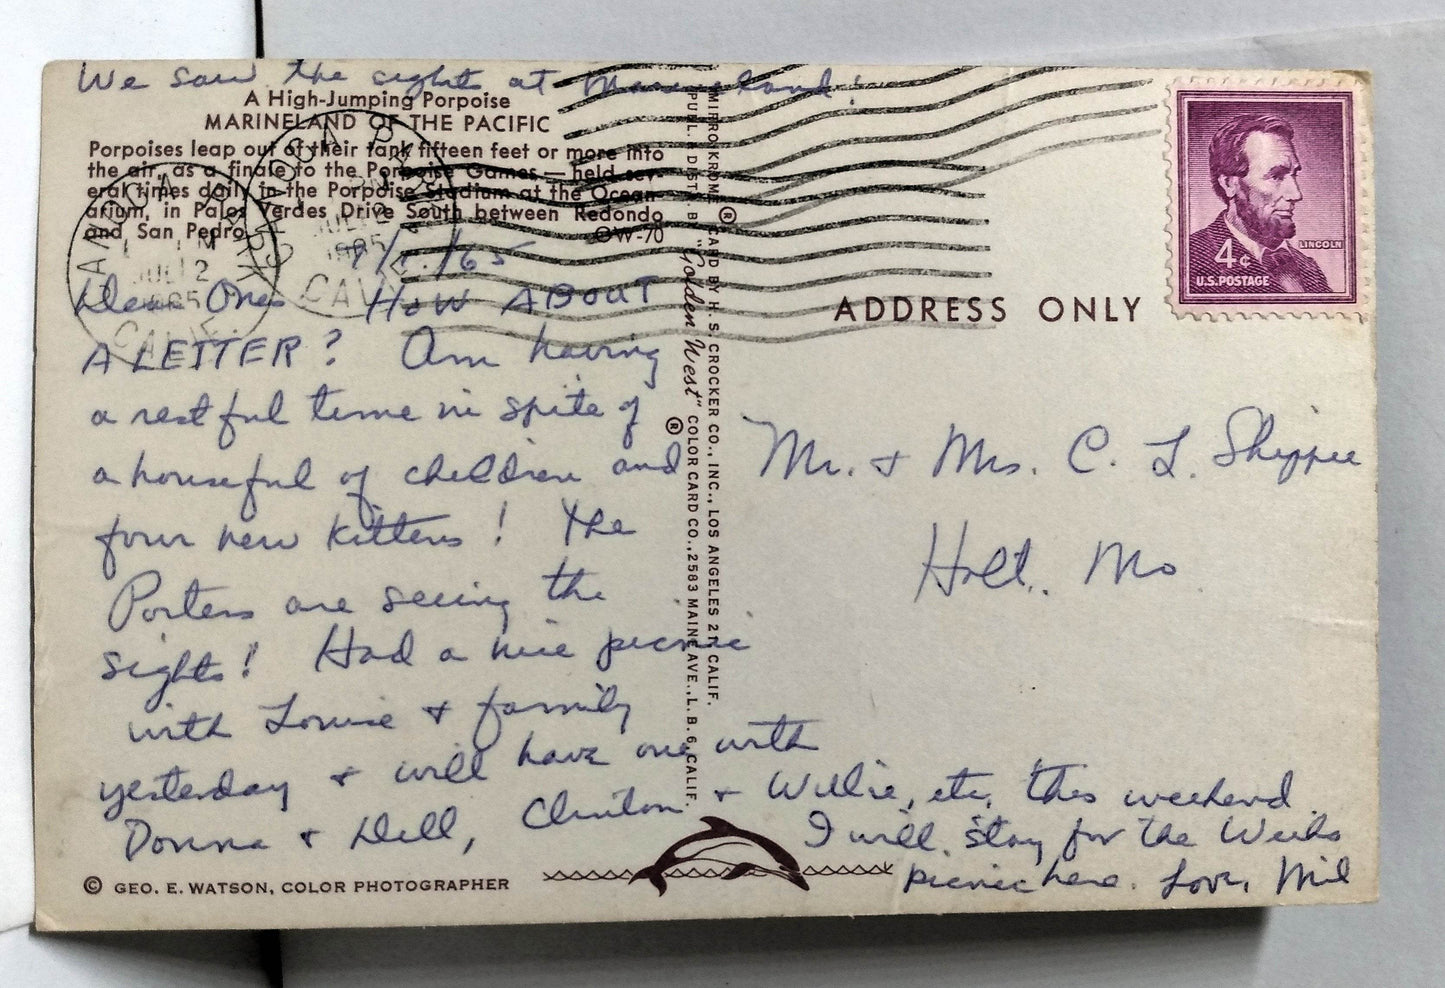 We saw the sights at Marineland!
A High-Jumping Porpoise
MARINELAND OF THE PACIFIC
Porpoises leap out of their tank fifteen feet or more into
the air, as a finale to the Porpoise Games — held sev-
eral times daily in the Porpoise Stadium at the Ocean-
arium, in Palos Verdes Drive South between Redondo
and San Pedro.
©W-70
CANOGA PARK
JUL 2
1965
CALIF.
CANOGA PARK
PM
JUL 2
1965
CALIF.
/65
Dear Ones HOW ABOUT
A LETTER? Am having
a restful time in spite of
a houseful of children and
four new kittens! The
Porters are seeing the
sights! Had a nice picnic
with Louise + family
yesterday + will have one with
Donna + Dell, Clinton + Willie, etc. this weekend.
I will stay for the Weeks
picnic here. Love, Mil
© GEO. E. WATSON, COLOR PHOTOGRAPHER
MIRRO-KROME ® CARD BY H. S. CROCKER CO., INC., LOS ANGELES 21 CALIF.
PUBL. & DISTR. BY "Golden West" ® COLOR CARD CO., 2583 MAINE AVE., L. B. 6, CALIF.
4¢
LINCOLN
U.S. POSTAGE
ADDRESS ONLY
Mr. + Mrs. C. L. Shippee
Holt, Mo